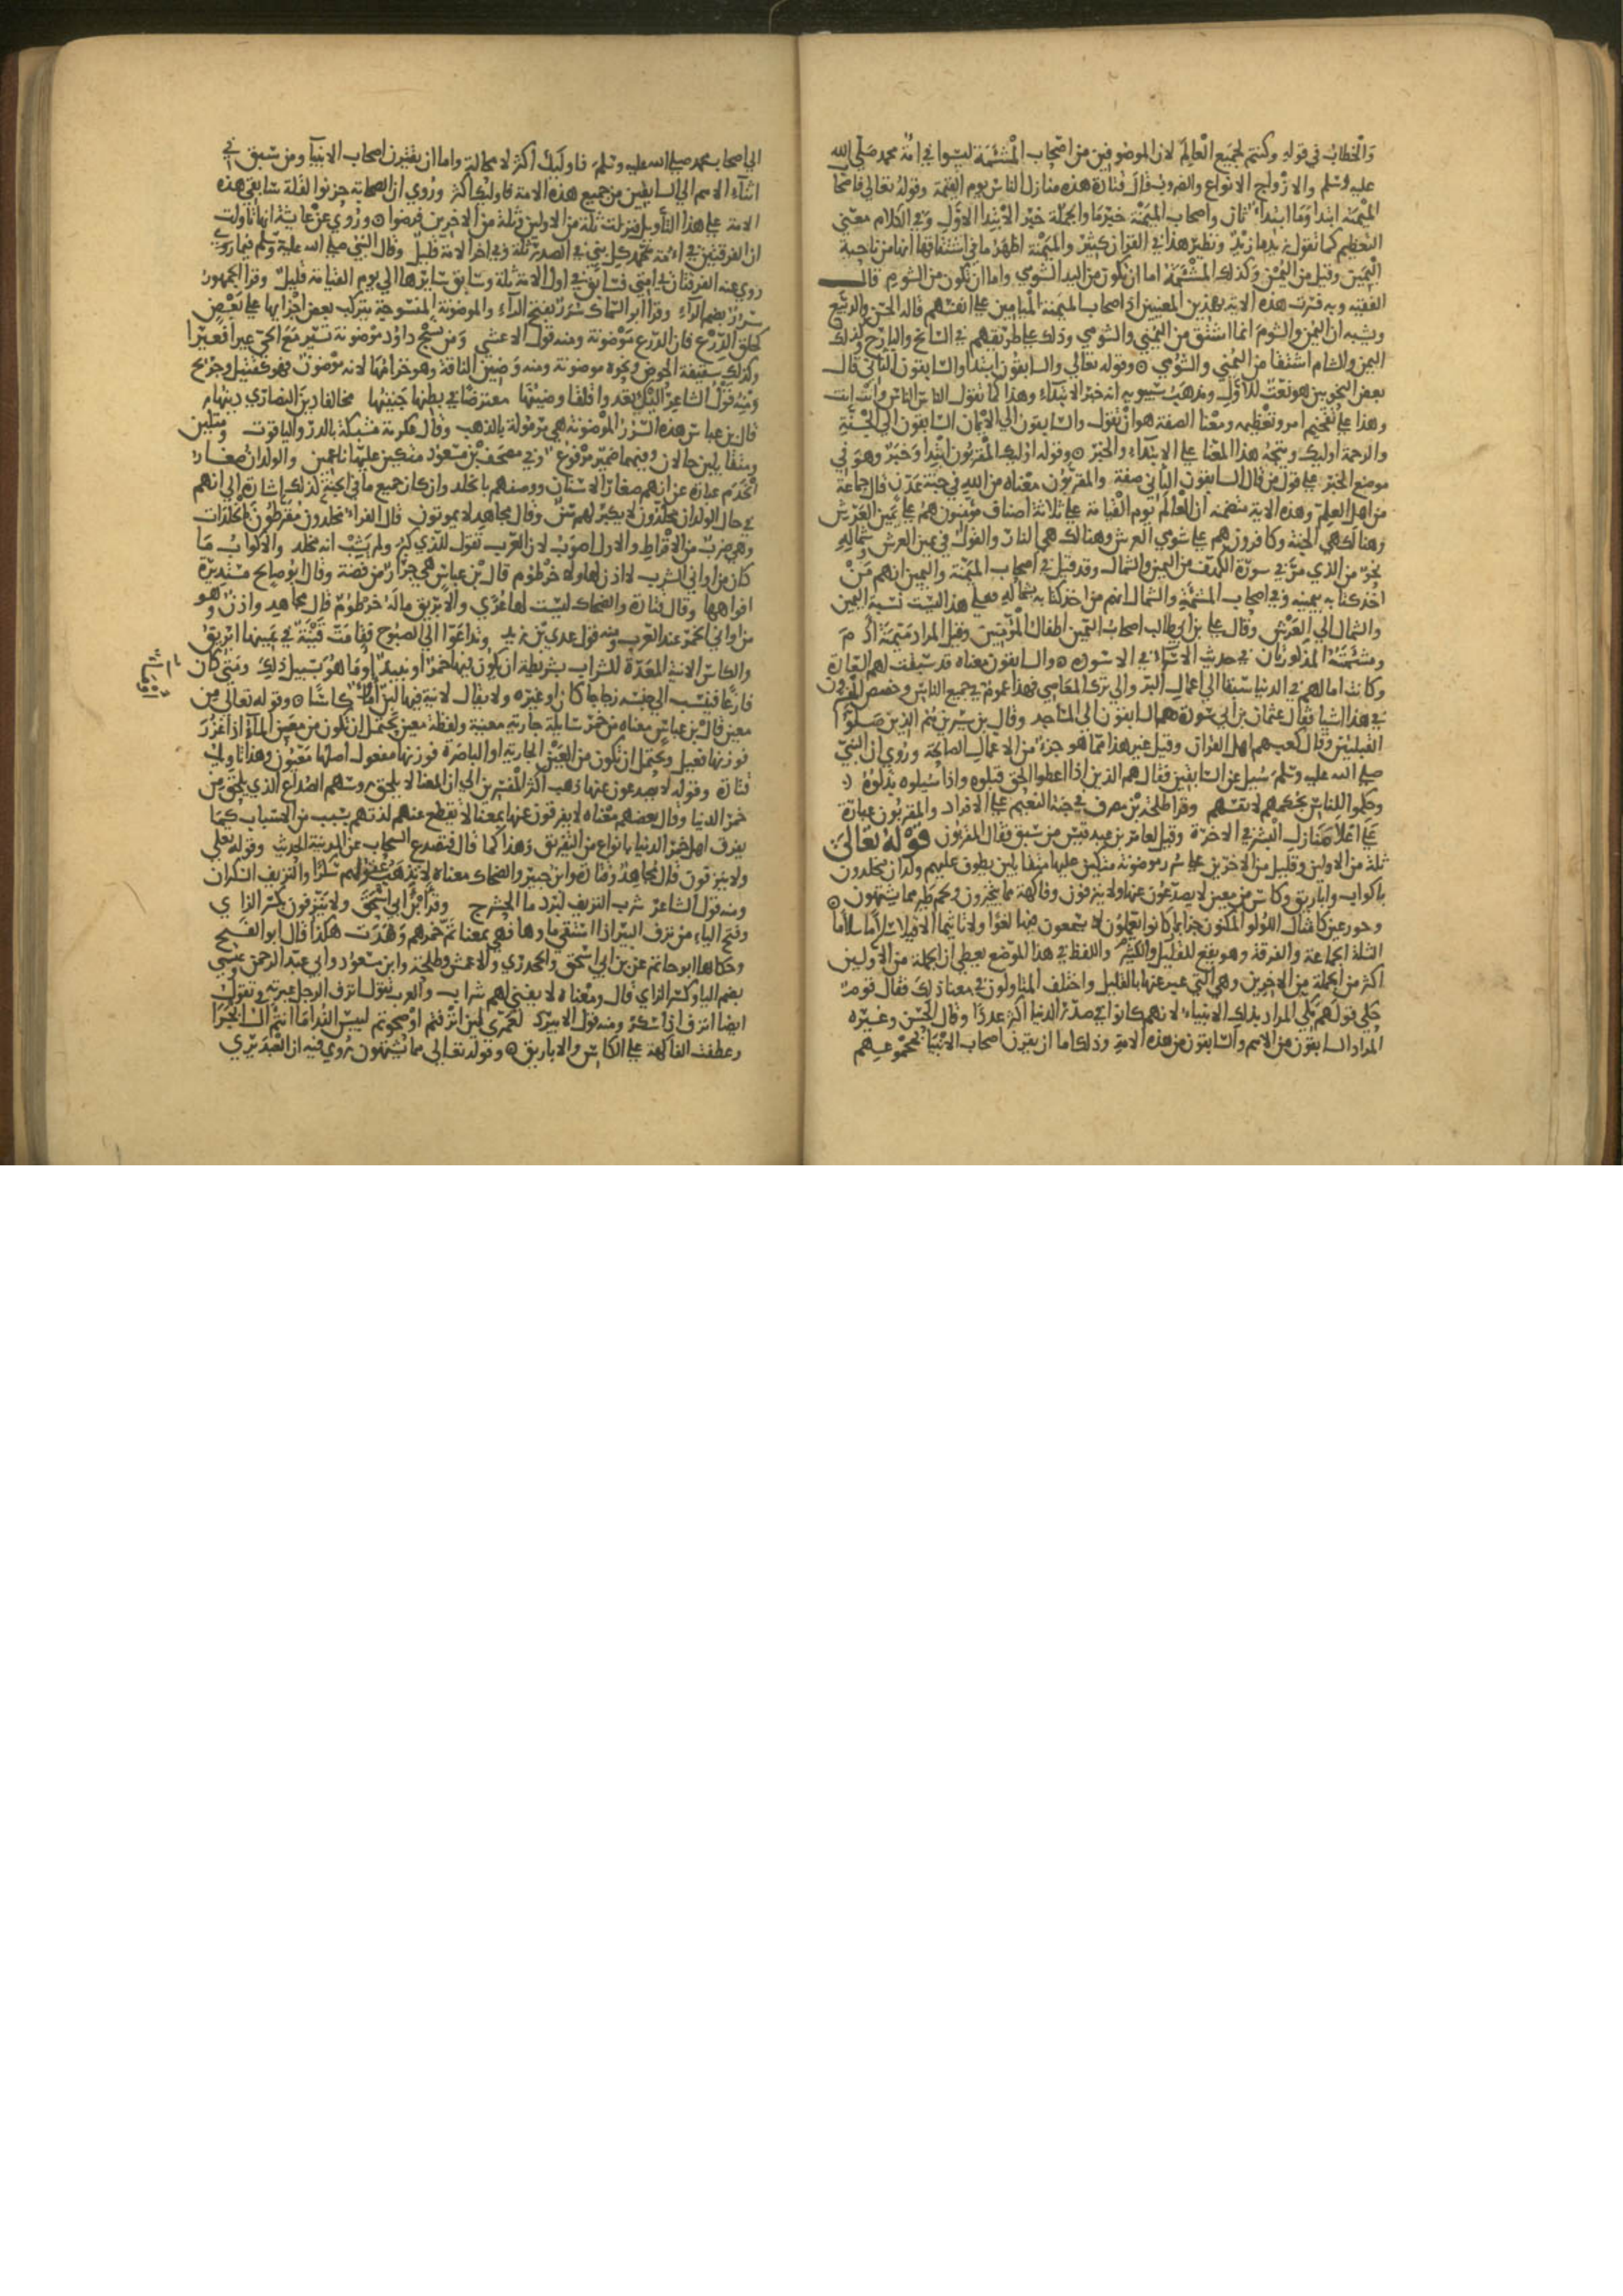 والخطاب في قوله وكنتم لجميع العالم لان الموصوفين من اصحاب المشئمة ليسوا في امة محمد صلى الله
عليه وسلم والازواج الانواع والضروب قال قتادة هذه منازل الناس يوم القيمة وقوله تعالى فاصحاب
الميمنة ابتدا وما ابتداء ثان واصحاب الميمنة خبر ما والجملة خبر الابتدا الاول وفي الكلام معنى
التعظيم كما تقول زيد ما زيد ونظير هذا في القران كثير والميمنة اظهر ما في اشتقاقها انها من ناحية
اليمين وقيل من اليمن وكذلك المشئمة اما ان تكون من اليد الشومي واما ان تكون من الشوم قال
الفقيه وبه فسرت هذه الاية بهذين المعنيين اذ اصحاب الميمنة الميامين على انفسهم قاله الحسن والربيع
ويشبه ان اليمن والشوم انما اشتق من اليمنى والشومي وذلك على طريقهم في السانح والبارح وكذلك
اليمن والشام اشتقا من اليمنى والشومي وقوله تعالى والسابقون ابتدا والسابقون الثاني قال
بعض النحويين هو نعت للاول ومذهب سيبويه انه خبر الابتداء وهذا كما تقول الناس الناس وانت انت
وهذا على تفخيم امر وتعظيمه ومعنا الصفة هو ان تقول والسابقون الى الايمان السابقون الى الجنة
والرحمة اوليك ويتجه هذا المعنا على الابتداء والخبر وقوله اوليك المقربون ابتدا وخبر وهو في
موضع الخبر على قول من قال السابقون الثاني صفة والمقربون معناه من الله في جنة عدن قال جماعة
من اهل العلم وهذه الاية متضمنة ان العالم يوم القيامة على ثلاثة اصناف مومنون هم على يمين العرش
وهنالك هي الجنة وكافرون هم على شومي العرش وهنالك هي النار والقول في يمين العرش وشماله
نحو من الذي مر في سورة الكهف من اليمين والشمال وقد قيل في اصحاب الميمنة واليمين انهم من
اخذ كتابه بيمينه وفي اصحاب المشئمة والشمال انهم من اخذ كتابه بشماله فعلى هذا ليست نسبة اليمين
والشمال الى العرش وقال علي بن ابي طالب اصحاب اليمين اطفال المومنين وقيل المراد ميمنة ادم
ومشئمته المذكورتان في حديث الاسراء في الاسودة والسابقون معناه قد سبقت لهم السعادة
وكانت اعمالهم في الدنيا سبقا الى اعمال البر والى ترك المعاصي فهذا عموم في جميع الناس وخصص المفسرون
في هذا اشيا فقال عثمان بن ابي سودة هم السابقون الى المساجد وقال بن سيرين هم الذين صلوا
القبلتين وقال كعب هم اهل القران وقيل غير هذا مما هو جزء من الاعمال الصالحة وروي ان النبي
صلى الله عليه وسلم سيل عن السابقين فقال هم الذين اذا اعطوا الحق قبلوه واذا سيلوه بذلوه
وحكموا للناس بحكمهم لانفسهم وقرا طلحة بن مصرف في جنة النعيم على الافراد والمقربون عبارة
عن اعلا منازل البشر في الاخرة وقيل لعامر بن عبد قيس من سبق فقال المقربون قوله تعالى
ثلة من الاولين وقليل من الاخرين على سرر موضونة متكئين عليها متقابلين يطوف عليهم ولدان مخلدون
باكواب واباريق وكاس من معين لا يصدعون عنها ولا ينزفون وفاكهة مما يتخيرون ولحم طير مما يشتهون
وحور عين كامثال اللولو المكنون جزا بما كانوا يعملون لا يسمعون فيها لغوا ولا تاثيما الا قيلا سلاما سلاما
الثلة الجماعة والفرقة وهو يقع للقليل والكثير واللفظ في هذا الموضع يعطي ان الجملة من الاولين
اكثر من الجملة من الاخرين وهي التي عبر عنها بالقليل واختلف المتاولون في معنا ذلك فقال قوم
حكى قولهم مكي المراد بذلك الانبياء لانهم كانوا في صدر الدنيا اكثر عددا وقال الحسن وغيره
المراد السابقون من الامم والسابقون من هذه الامة وذلك اما ان يقرن اصحاب الانبيا بجموعهم
الى اصحاب محمد صلى الله عليه وسلم فاوليك اكثر لا محالة واما ان يقترن اصحاب الانبيا ومن سبق في
اثناء الامم الى السابقين من جميع هذه الامة فاوليك اكثر وروي ان الصحابة حزنوا لقلة سابقي هذه
الامة على هذا التاويل فنزلت ثلة من الاولين وثلة من الاخرين فرضوا وروي عن عايشة انها تاولت
ان الفرقتين في امة كل نبي في الصدر ثلة وفي اخر الامة قليل وقال النبي صلى الله عليه وسلم فيما روي
روي عنه الفرقتان في امتي فسابق في اول الامة ثلة وسابق سايرها الى يوم القيامة قليل وقرا الجمهور
سرر بضم الراء وقرا ابو السماك سرر بفتح الراء والموضونة المنسوجة بتركيب بعض اجزايها على بعض
كحلق الدرع فان الدرع موضونة ومنه قول الاعشى ومن نسج داود موضونة تسير مع الحي عيرا فعيرا
وكذلك سقيفة الخوص ونحوه موضونة ومنه وضين الناقة وهو حزامها لانه موضون فهو كقتيل وجريح
ومنه قول الشاعر اليك تعدو قلقا وضينها معترضا في بطنها جنينها مخالفا دين النصارى دينها
قال بن عباس هذه السرر الموضونة هي مرمولة بالذهب وقال عكرمة مشبكة بالدر والياقوت ومتكئين
ومتقابلين حالان وفيهما ضمير مرفوع وفي مصحف بن مسعود متكئين عليها ناعمين والولدان صغار
الخدم عبارة عن انهم صغار الاسنان ووصفهم بالخلد وان كان جميع ما في الجنة كذلك اشارة الى انهم
في حال الولدان مخلدون لا يكبر لهم سن وقال مجاهد لا يموتون قال الفراء مخلدون مقرطون بالخلدات
وهي ضرب من الاقراط والاول اصوب لان العرب تقول للذي كبر ولم يشب انه مخلد والاكواب ما
كان من اواني الشرب لا اذن لها ولا خرطوم قال بن عباس هي جرار من فضة وقال ابو صالح مستديرة
افواهها وقال قتادة والضحاك ليست لها عرى والابريق ماله خرطوم قال مجاهد واذن وهو
من اواني الخمر عند العرب ومنه قول عدي بن زيد وتداعوا الى الصبوح فقامت قينة في يمينها ابريق
والكاس الانية المعدة للشراب بشريطة ان يكون فيها خمرا او نبيذ او ما هو بسبيل ذلك ومتى كان
فارغا فينسب الى جنسه زجاجا كان او غيره ولا يقال لانية فيها لبن او ماء كاسا وقوله تعالى من
معين قال بن عباس معناه من خمر سايلة جارية معينة ولفظة معين يحتمل ان تكون من معن الماء اذا غزر
فوزنها فعيل ويحتمل ان تكون من العين الجارية او الباصرة فوزنها مفعول اصلها معيون وهذا تاويل
قتادة وقوله لا يصدعون عنها ذهب اكثر المفسرين الى ان المعنا لا يلحق روسهم الصداع الذي يلحق من
خمر الدنيا وقال بعضهم معناه لا يفرقون عنها بمعنا لا تقطع عنهم لذتهم بسبب من الاسباب كما
يفرق اهل خمر الدنيا بانواع من التفريق وهذا كما قال فتصدع السحاب عن المدينة الحديث وقوله تعالى
ولا ينزفون قال مجاهد وقتادة وابن جبير والضحاك معناه لا تذهب عقولهم سكرا والنزيف السكران
ومنه قول الشاعر شرب النزيف لبرد ما الحشرج وقرا بن ابي اسحق ولا ينزفون بكسر الزاي
وفتح الياء من نزف البير اذا استقي ماوها فهي بمعنا تم خمرهم ونفدت هكذا قال ابو الفتح
وحكاها ابو حاتم عن بن ابي اسحق والجحدري والاعمش وطلحة وابن مسعود وابي عبد الرحمن وعيسى
بضم اليا وكسر الزاي قال ومعناه لا يفنى لهم شراب والعرب تقول انزف الرجل عبرته وتقول
ايضا انزف اذا سكر ومنه قول الابيرد لعمري لين انزفتم او صحوتم لبيس الندامى انتم ال ابجرا
وعطفت الفاكهة على الكاس والاباريق وقوله تعالى مما يشتهون روي فيه ان العبد يرى